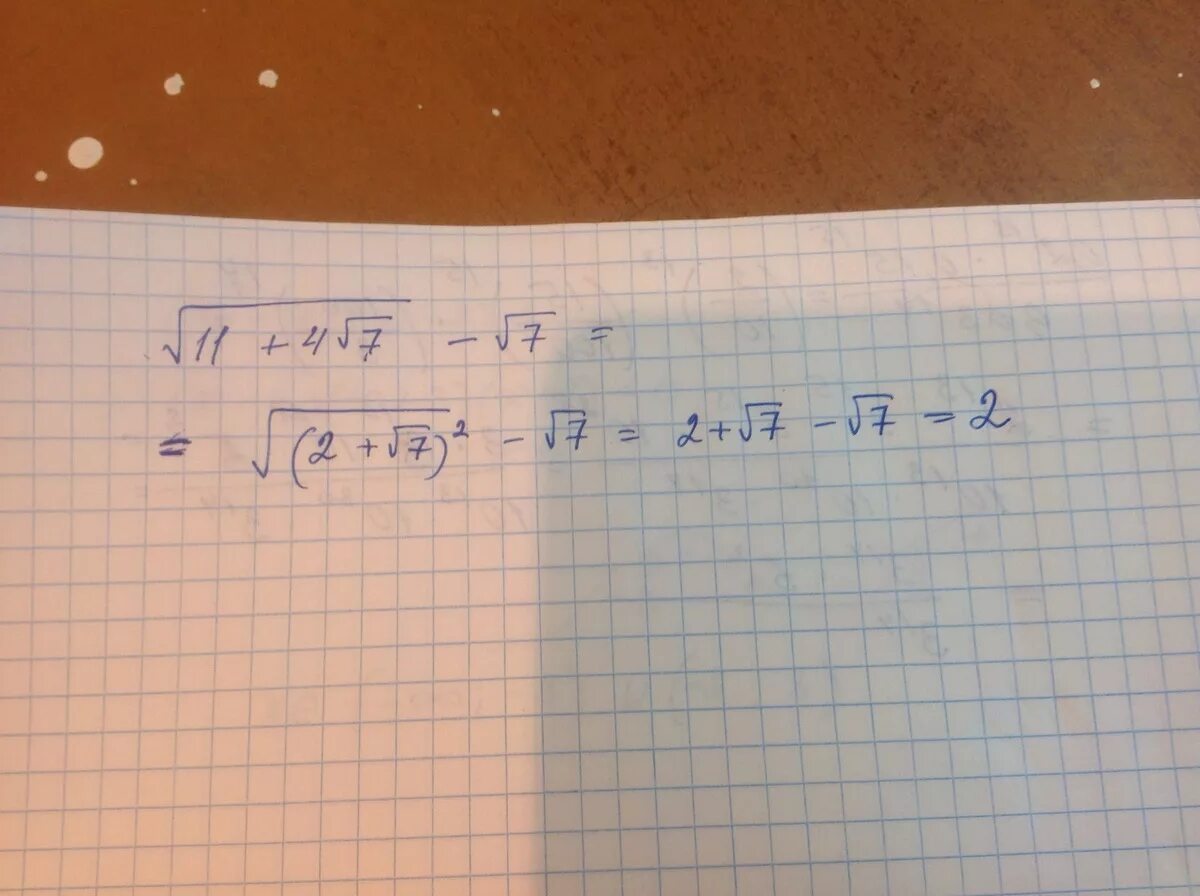 √(11 + 4√7) − √7 =
= √((2 + √7)²) − √7 = 2 + √7 − √7 = 2